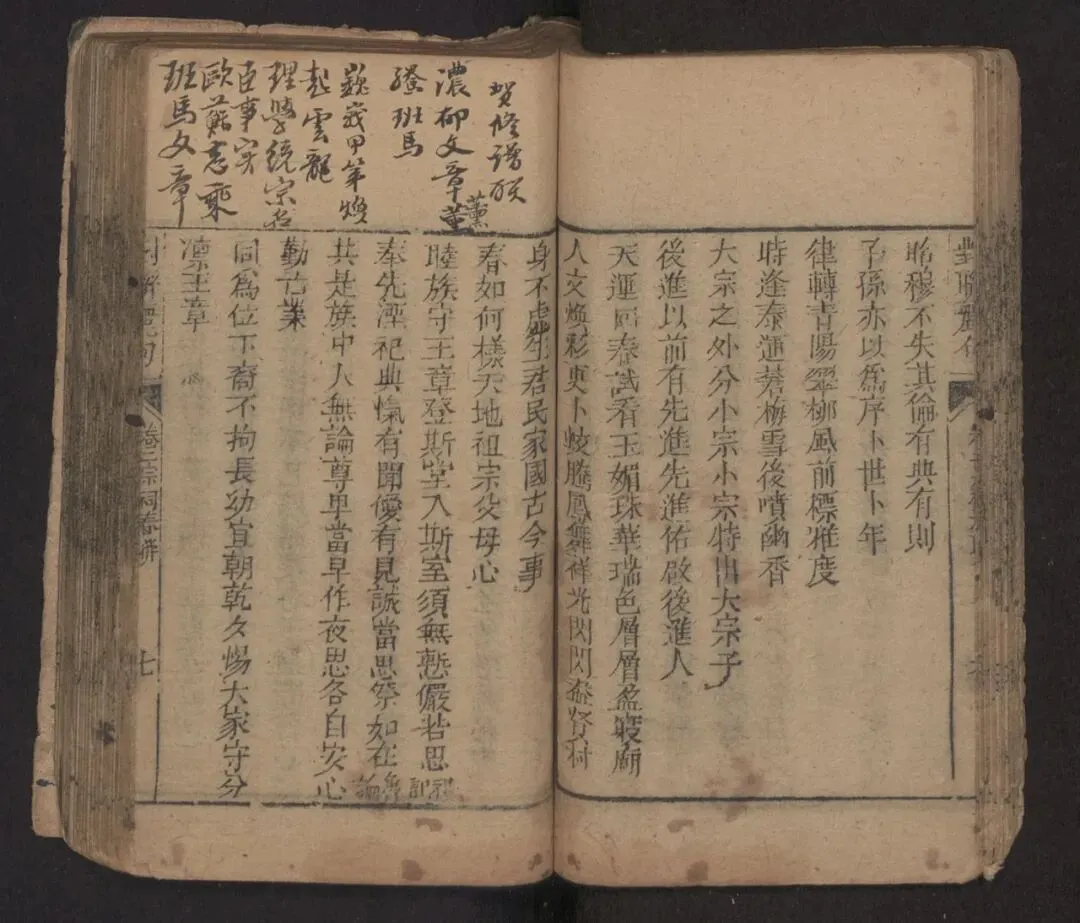 昭穆不失其倫有典有則
子孫亦以爲序卜世卜年
律轉青陽翠柳風前標雅度
時逢泰運梅雪後噴幽香
大宗之外分小宗小宗特出大宗子
後進以前有先進先進佑啟後進人
天運回春試看玉媚珠華瑞色層層盈廟
人文煥彩更卜蛟騰鳳舞祥光閃閃發賢村
賀修譜联
濃柳文章薰
薰
騰班馬
巍峩甲第煥
起雲龍
理學統宗名
臣事实
歐蘇志乘
班馬文章
身不虛生君民家國古今事
春如何樣天地祖宗父母心
睦族守王章登斯堂入斯室須無慙儼若思禮記
奉先湮祀典愾有聞僾有見誠當思祭如在魯論
共是族中人無論尊卑當早作夜思各自安心
勤古業
同爲位下裔不拘長幼宜朝乾夕惕大家守分
凜王章
對聯麗句 卷二宗祠春聯 七